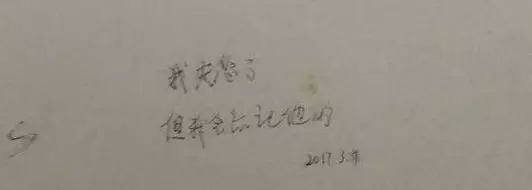 我失恋了
但我会忘记他的
2017.3.